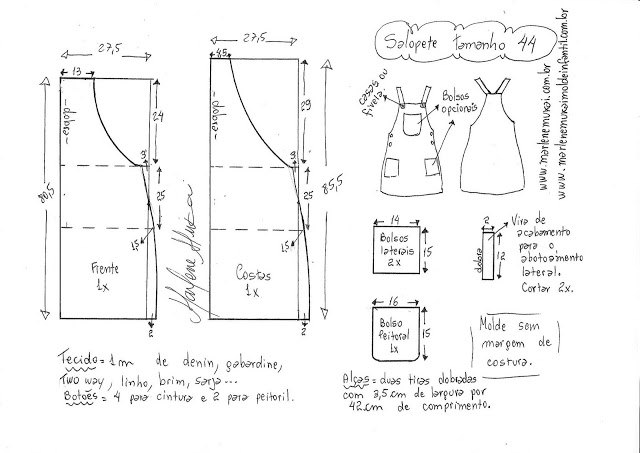 Salopete tamanho 44
27,5
13
dobra
24
3
25
80,5
1,5
Frente
1x
2
27,5
4,5
dobra
29
3
25
85,5
1,5
Costas
1x
2
Marlene Mukai
casas ou
fivela.
Bolsos
opcionais
www.marlenemukai.com.br
www.marlenemukaimoldeinfantil.com.br
14
Bolsos
laterais
2x
15
2
dobra
12
Vira de
acabamento
para o
abotoamento
lateral.
Cortar 2x.
16
Bolso
peitoral
1x
15
Molde sem
margem de
costura.
Tecido = 1m de denin, gabardine,
Two way, linho, brim, sarja...
Botões = 4 para cintura e 2 para peitoril.
Alças = duas tiras dobradas
com 3,5 cm de largura por
42 cm de comprimento.